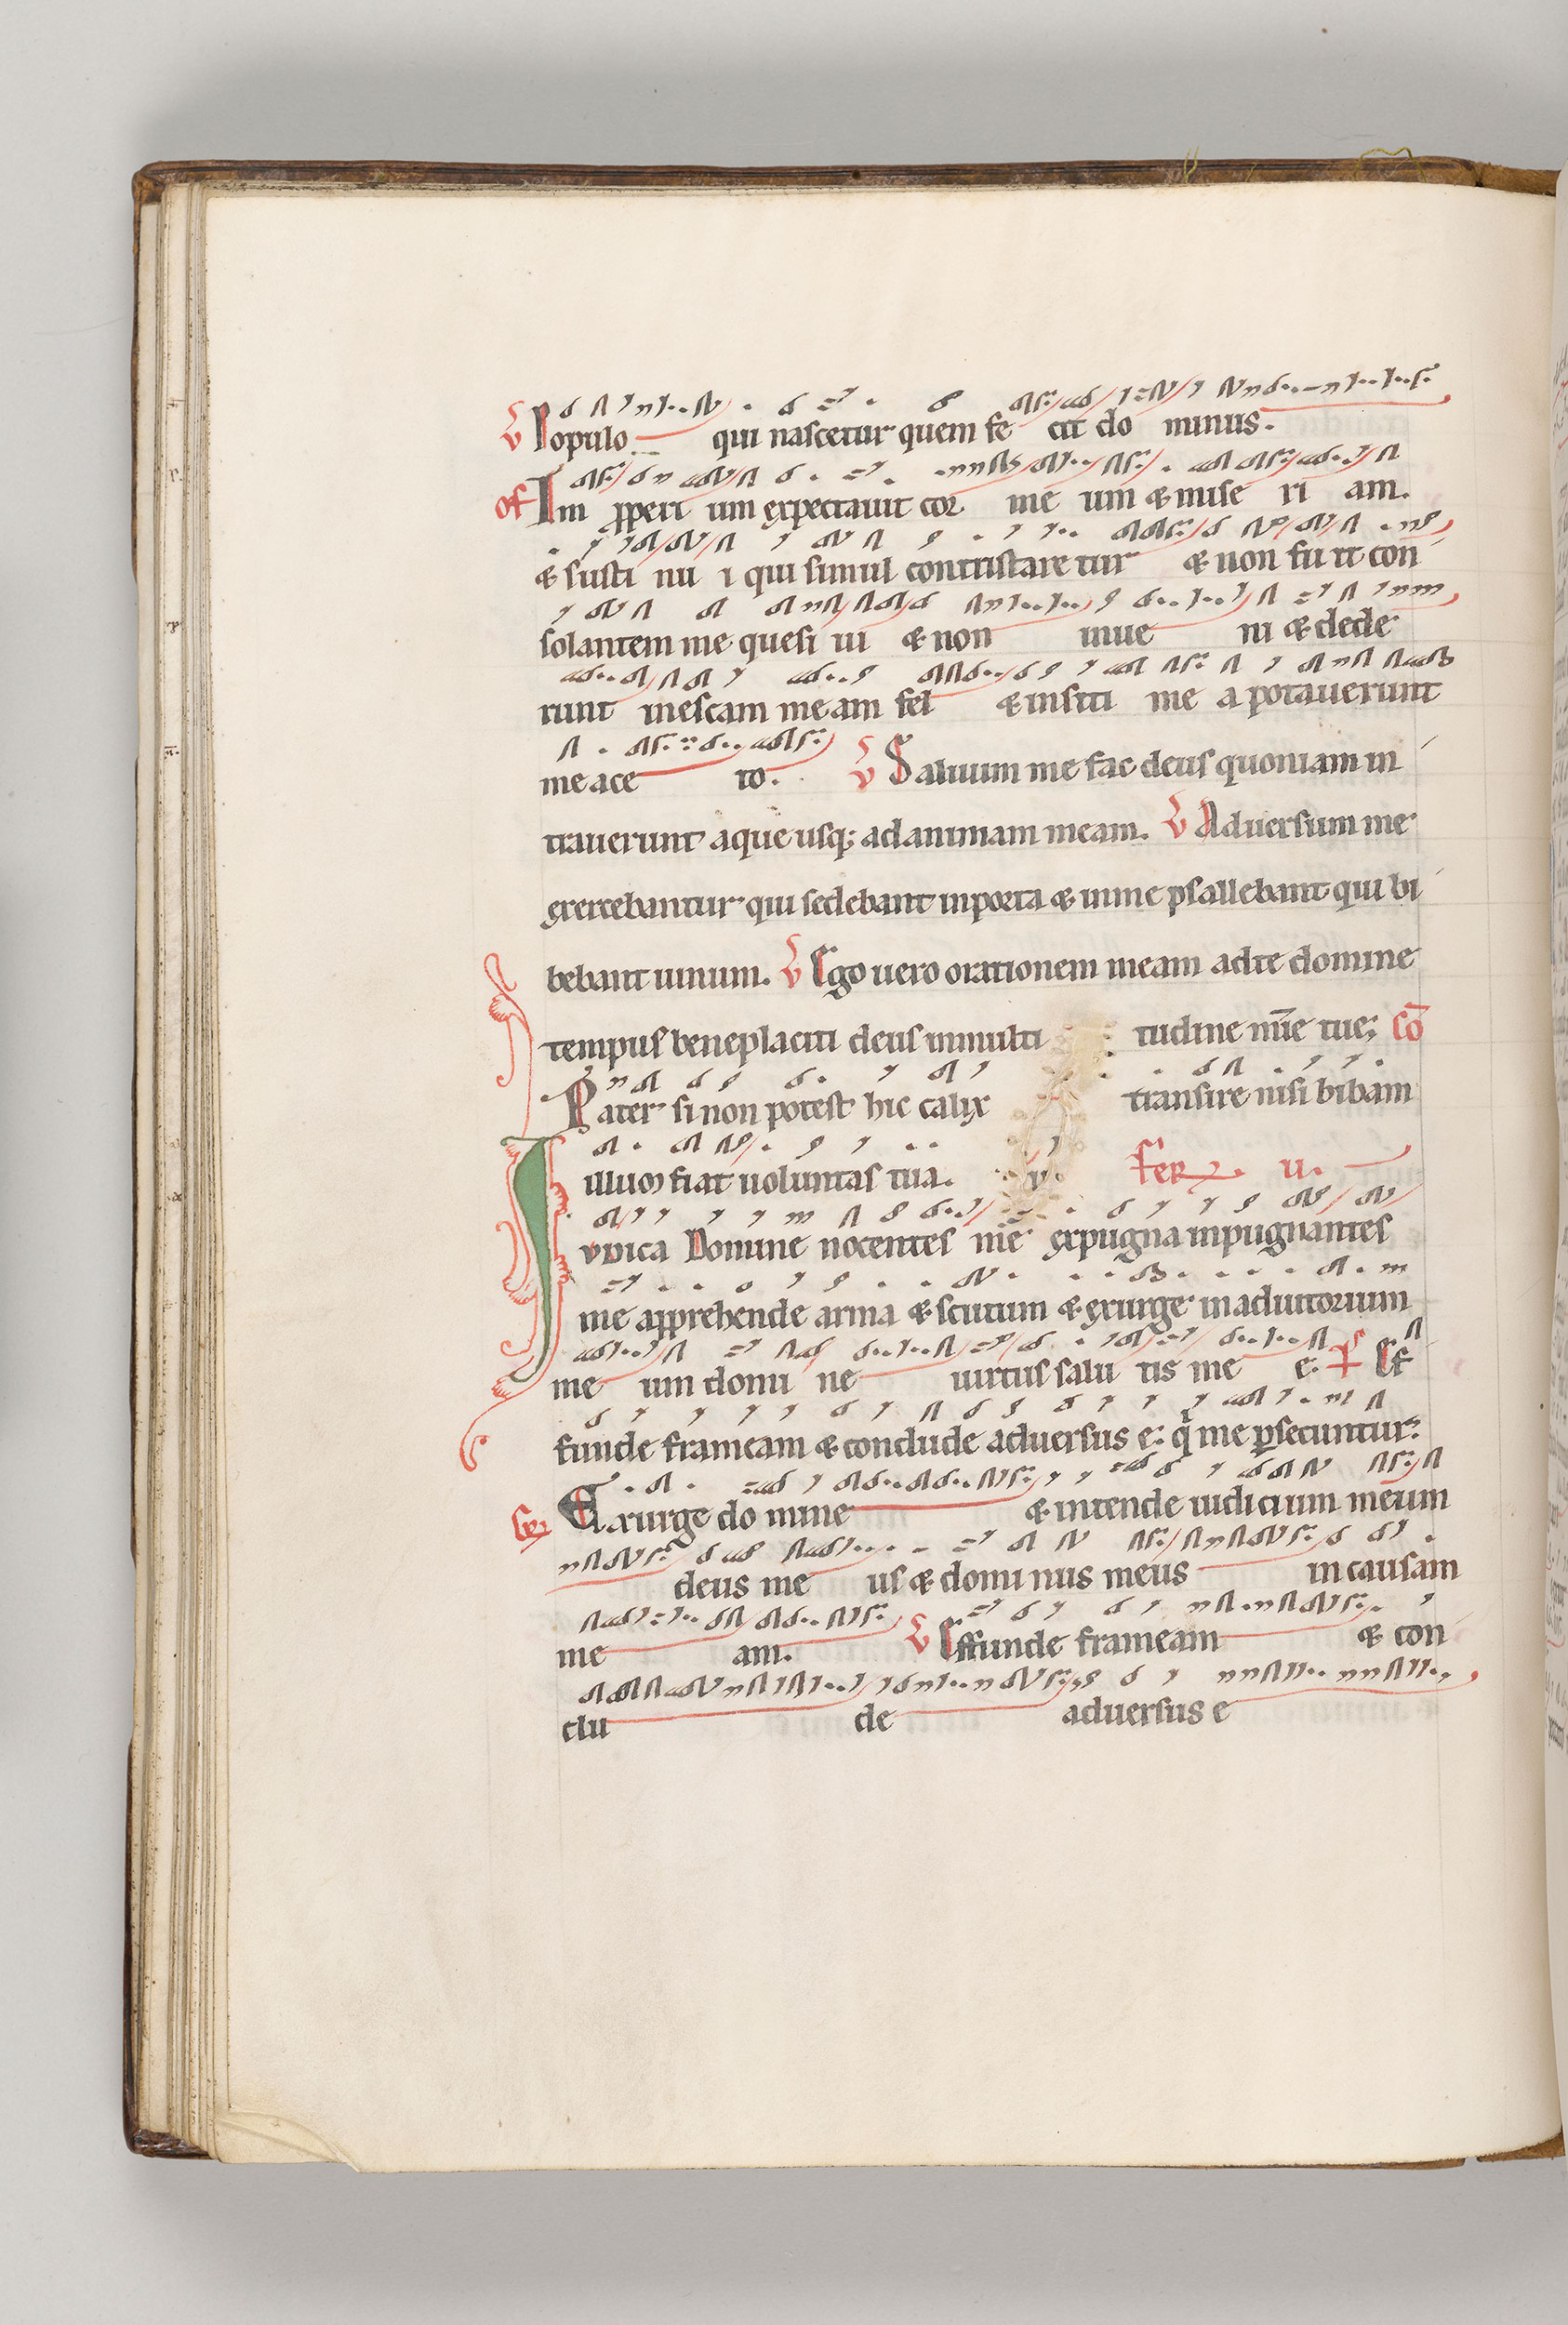 v Populo qui nascetur quem fe cit do minus.
of Im properi um expectauit cor me um & mise ri am.
& susti nu i qui simul contristare tur & non fu it con
solantem me quesi ui & non inue ni & dede
runt inescam meam fel & insiti me a potauerunt
me ace to. v Saluum me fac deus quoniam in
trauerunt aque usq; ad animam meam. v Aduersum me
exercebantur qui sedebant inporta & inme psallebant qui bi
bebant uinum. v Ego uero orationem meam adte domine
tempus beneplaciti deus inmulti tudine mīe tue; cō
Pater si non potest hic calix transire nisi bibam
illum fiat uoluntas tua. fer ii.
Ivdica Domine nocentes me expugna inpugnantes
me apprehende arma & scutum & exurge inadiutorium
me um domi ne uirtus salu tis me e. ps Ef
funde frameam & conclude aduersus e: q me psecuntur.
Gr Exurge do mine & intende iudicium meum
deus me us & domi nus meus in causam
me am. v Effunde frameam & con
clu de aduersus e